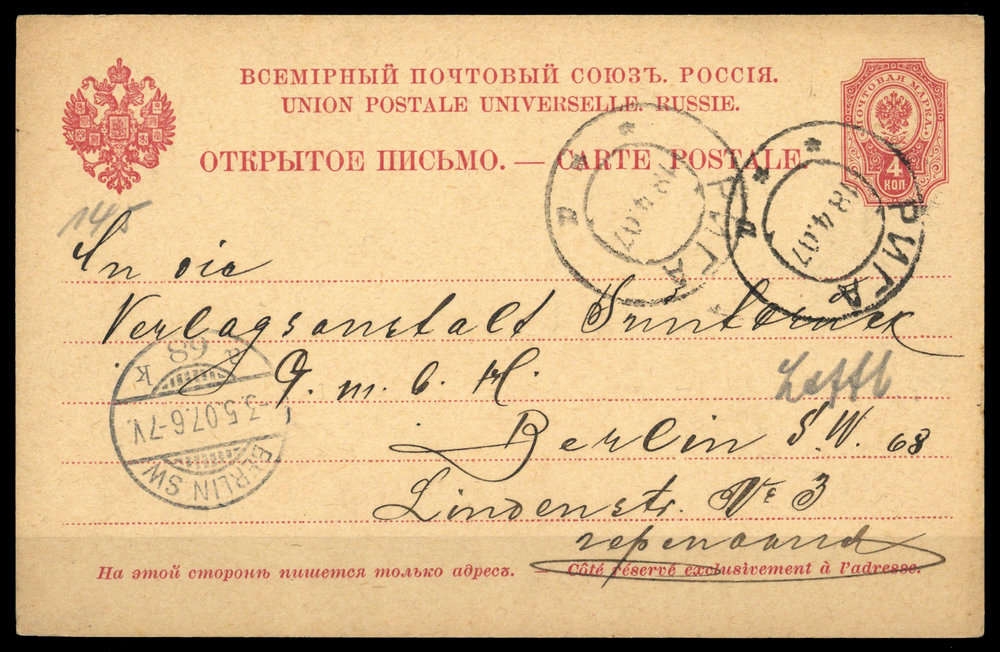 ВСЕМІРНЫЙ ПОЧТОВЫЙ СОЮЗЪ. РОССІЯ.
UNION POSTALE UNIVERSELLE. RUSSIE.
ПОЧТОВАЯ МАРКА
4
КОП.
ОТКРЫТОЕ ПИСЬМО. — CARTE POSTALE
РИГА
18 4.07
РИГА
18 4.07
An die
Verlagsanstalt
G. m. b. H.
Berlin S.W. 68
Lindenstr. № 3
68
k
-3.5.07.6-7V.
BERLIN SW
На этой сторонѣ пишется только адресъ. — Côté réservé exclusivement à l'adresse.